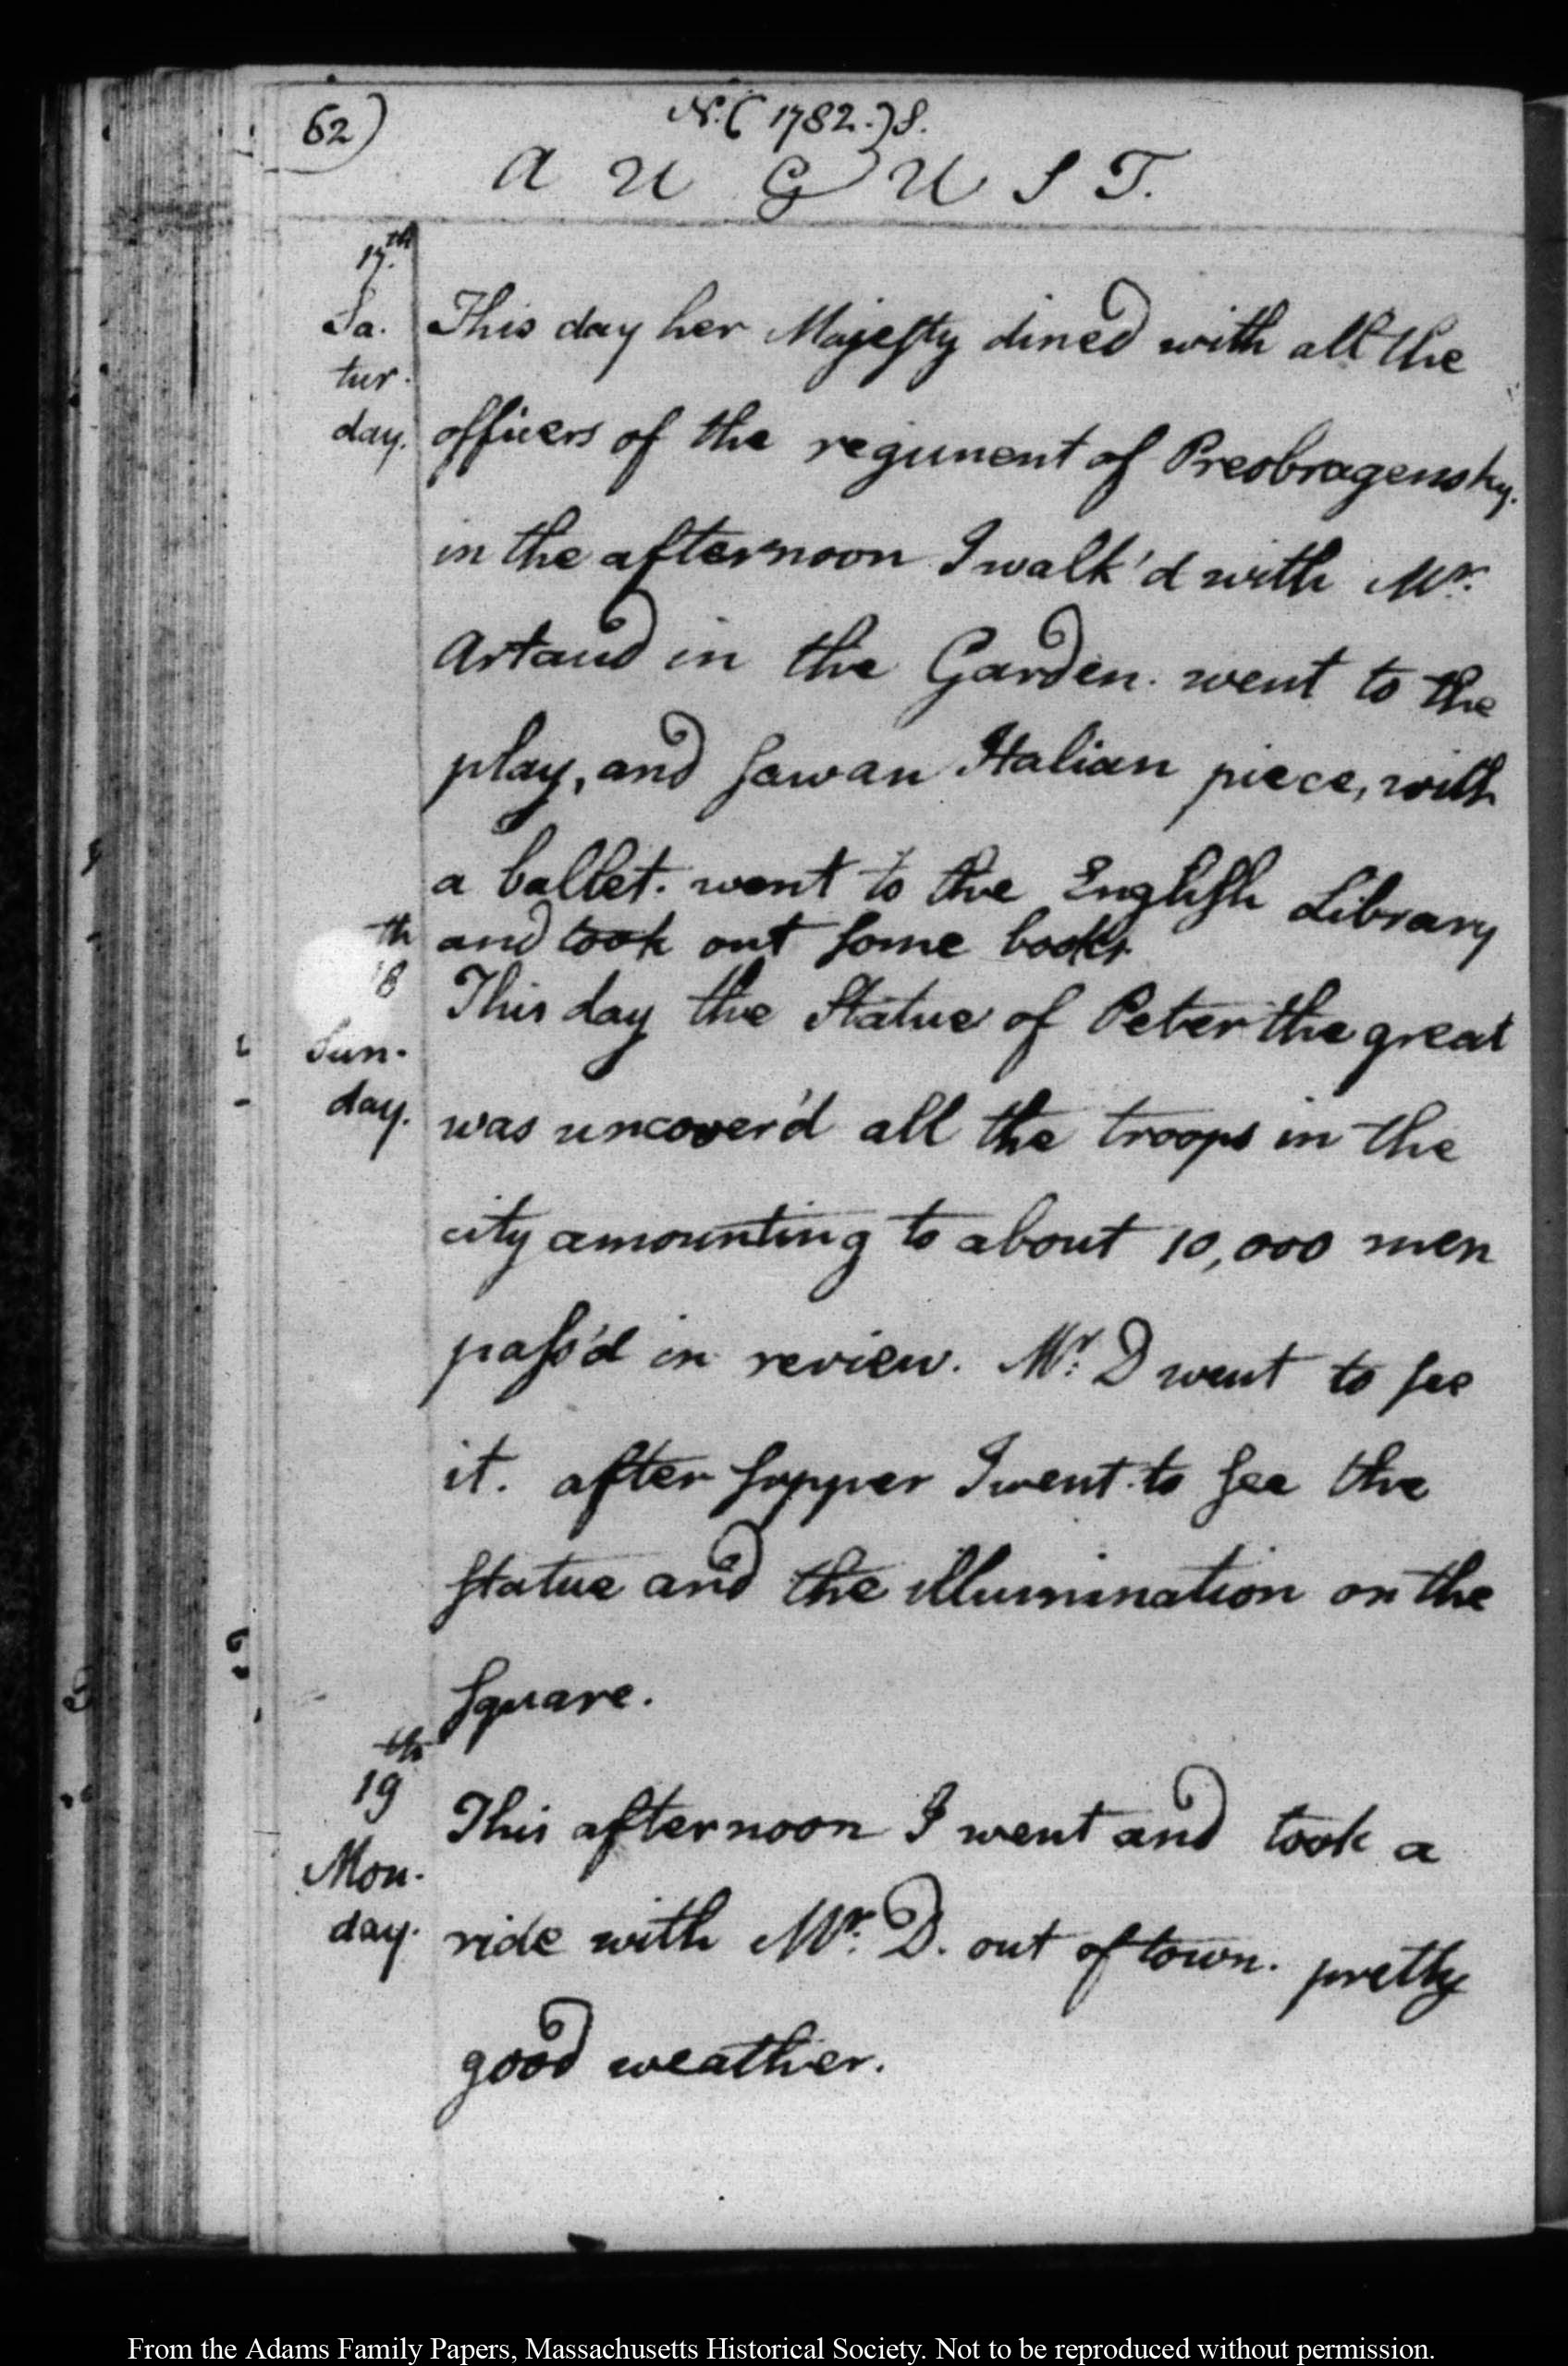 62)
N. ( 1782.) S.
A U G U S T.
17.th
Sa.
tur.
day.
This day her Majesty dined with all the
officers of the regiment of Preobragensky.
in the afternoon I walk'd with Mr.
Artaud in the Garden. went to the
play, and saw an Italian piece, with
a ballet. went to the English Library
and took out some books
18 th
Sun.
day.
This day the Statue of Peter the great
was uncover'd all the troops in the
city amounting to about 10,000 men
pass'd in review. Mr. D went to see
it. after supper I went to see the
statue and the illumination on the
square.
19 th
Mon.
day.
This afternoon I went and took a
ride with Mr. D. out of town. pretty
good weather.
From the Adams Family Papers, Massachusetts Historical Society. Not to be reproduced without permission.